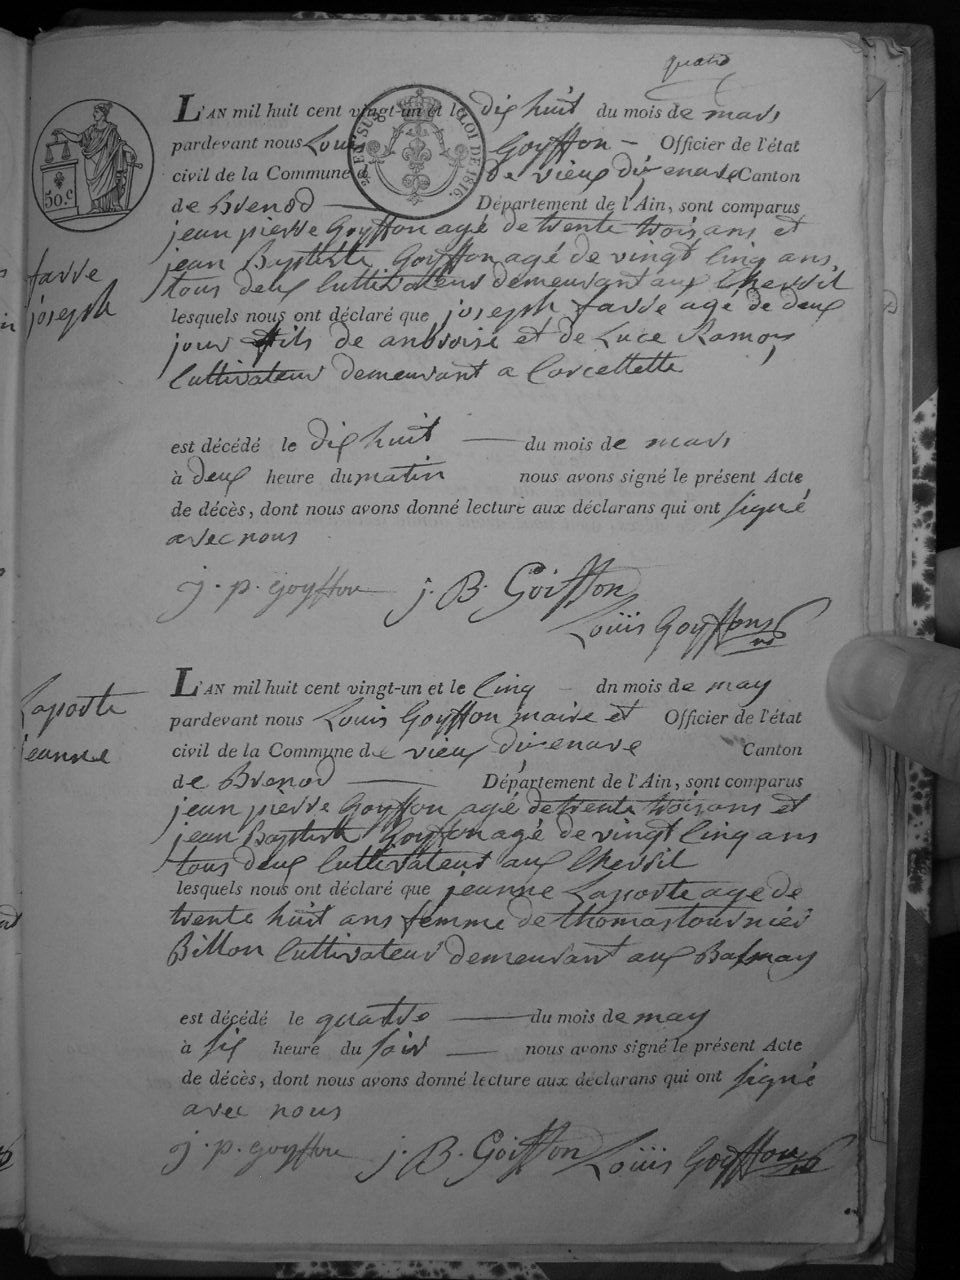 quatre
L'AN mil huit cent vingt-un et le dix huit du mois de mars
pardevant nous Louis Goyffon — Officier de l'état
civil de la Commune de vieux d'izenave Canton
de Brenod — Département de l'Ain, sont comparus
jean pierre Goyffon agé de trente trois ans et
jean Baptiste Goyffon agé de vingt cinq ans
tous deux Cultivateurs demeurant aux Chevril
lesquels nous ont déclaré que joseph favre agé de deux
jour fils de anbroise et de Luce Ramoy
Cultivateur demeurant a Corcellette
est décédé le dix huit — du mois de mars
à deux heure du matin nous avons signé le présent Acte
de décès, dont nous avons donné lecture aux déclarans qui ont signé
avec nous
j. p. goyffon j. B. Goiffon
Louis Goyffon
favre
joseph
50 c.
EN SUS
LOI DE 1816.
Laporte
jeanne
L'AN mil huit cent vingt-un et le cinq — dn mois de may
pardevant nous Louis Goyffon maire et Officier de l'état
civil de la Commune de vieux d'izenave Canton
de Brenod — Département de l'Ain, sont comparus
jean pierre Goyffon agé de trente trois ans et
jean Baptiste Goyffon agé de vingt cinq ans
tous deux Cultivateurs aux Chevril
lesquels nous ont déclaré que jeanne Laporte agé de
trente huit ans femme de thomas tournier
Billon Cultivateur demeurant aux Balmay
est décédé le quatre — du mois de may
à six heure du soir — nous avons signé le présent Acte
de décès, dont nous avons donné lecture aux déclarans qui ont signé
avec nous
j. p. goyffon j. B. Goiffon Louis Goyffon